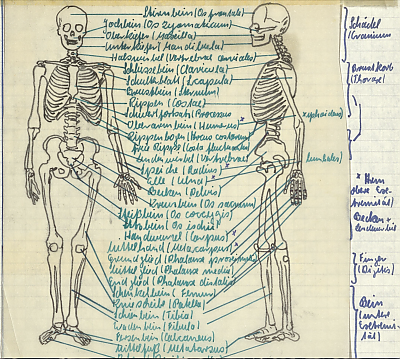 Stirnbein (Os frontale)
Jochbein (Os zygomaticum)
Oberkiefer (Maxilla)
Unterkiefer (Mandibula)
Halswirbel (Vertebrae cervicales)
Schlüsselbein (Clavicula)
Schulterblatt (Scapula)
Brustbein (Sternum)
Rippen (Costae)
Schwertfortsatz (Processus
xyphoideus)
Oberarmbein (Humerus)
Rippenbogen (Arcus costarum)
freie Rippe (Costa fluctuans)
Lendenwirbel (Vertebrae
lumbales)
Speiche (Radius)
Elle (Ulna)
Becken (Pelvis)
Kreuzbein (Os sacrum)
Steißbein (Os coccygis)
Sitzbein (Os ischii)
Handwurzel (Carpus)
Mittelhand (Metacarpus)
Grundglied (Phalanx proximalis)
Mittelglied (Phalanx media)
Endglied (Phalanx distalis)
Schenkelbein (Femur)
Kniescheibe (Patella)
Schienbein (Tibia)
Wadenbein (Fibula)
Fersenbein (Calcaneus)
Mittelfuß (Metatarsus)
Schädel
(Cranium)
Brustkorb
(Thorax)
obere Ex-
tremität)
Becken +
Lendenwirbel
Finger
(Digitis)
Bein
(untere
Extremi-
tät)